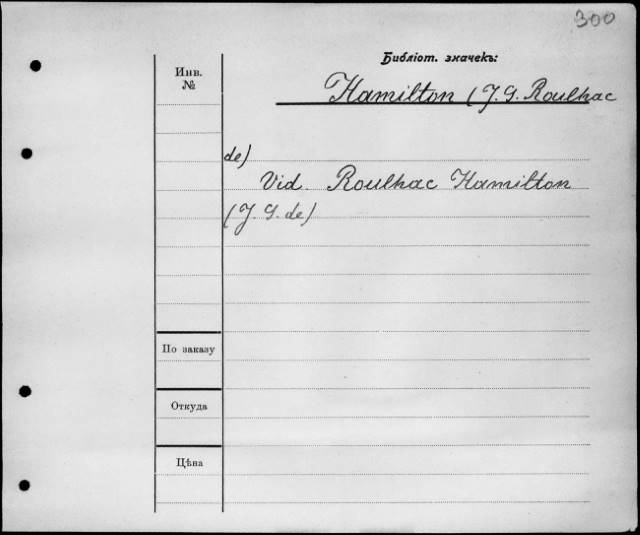 300
Библіот. значекъ:
Инв.
№
Hamilton (J. G. Roulhac
de)
Vid. Roulhac Hamilton
(J. G. de)
По заказу
Откуда
Цѣна